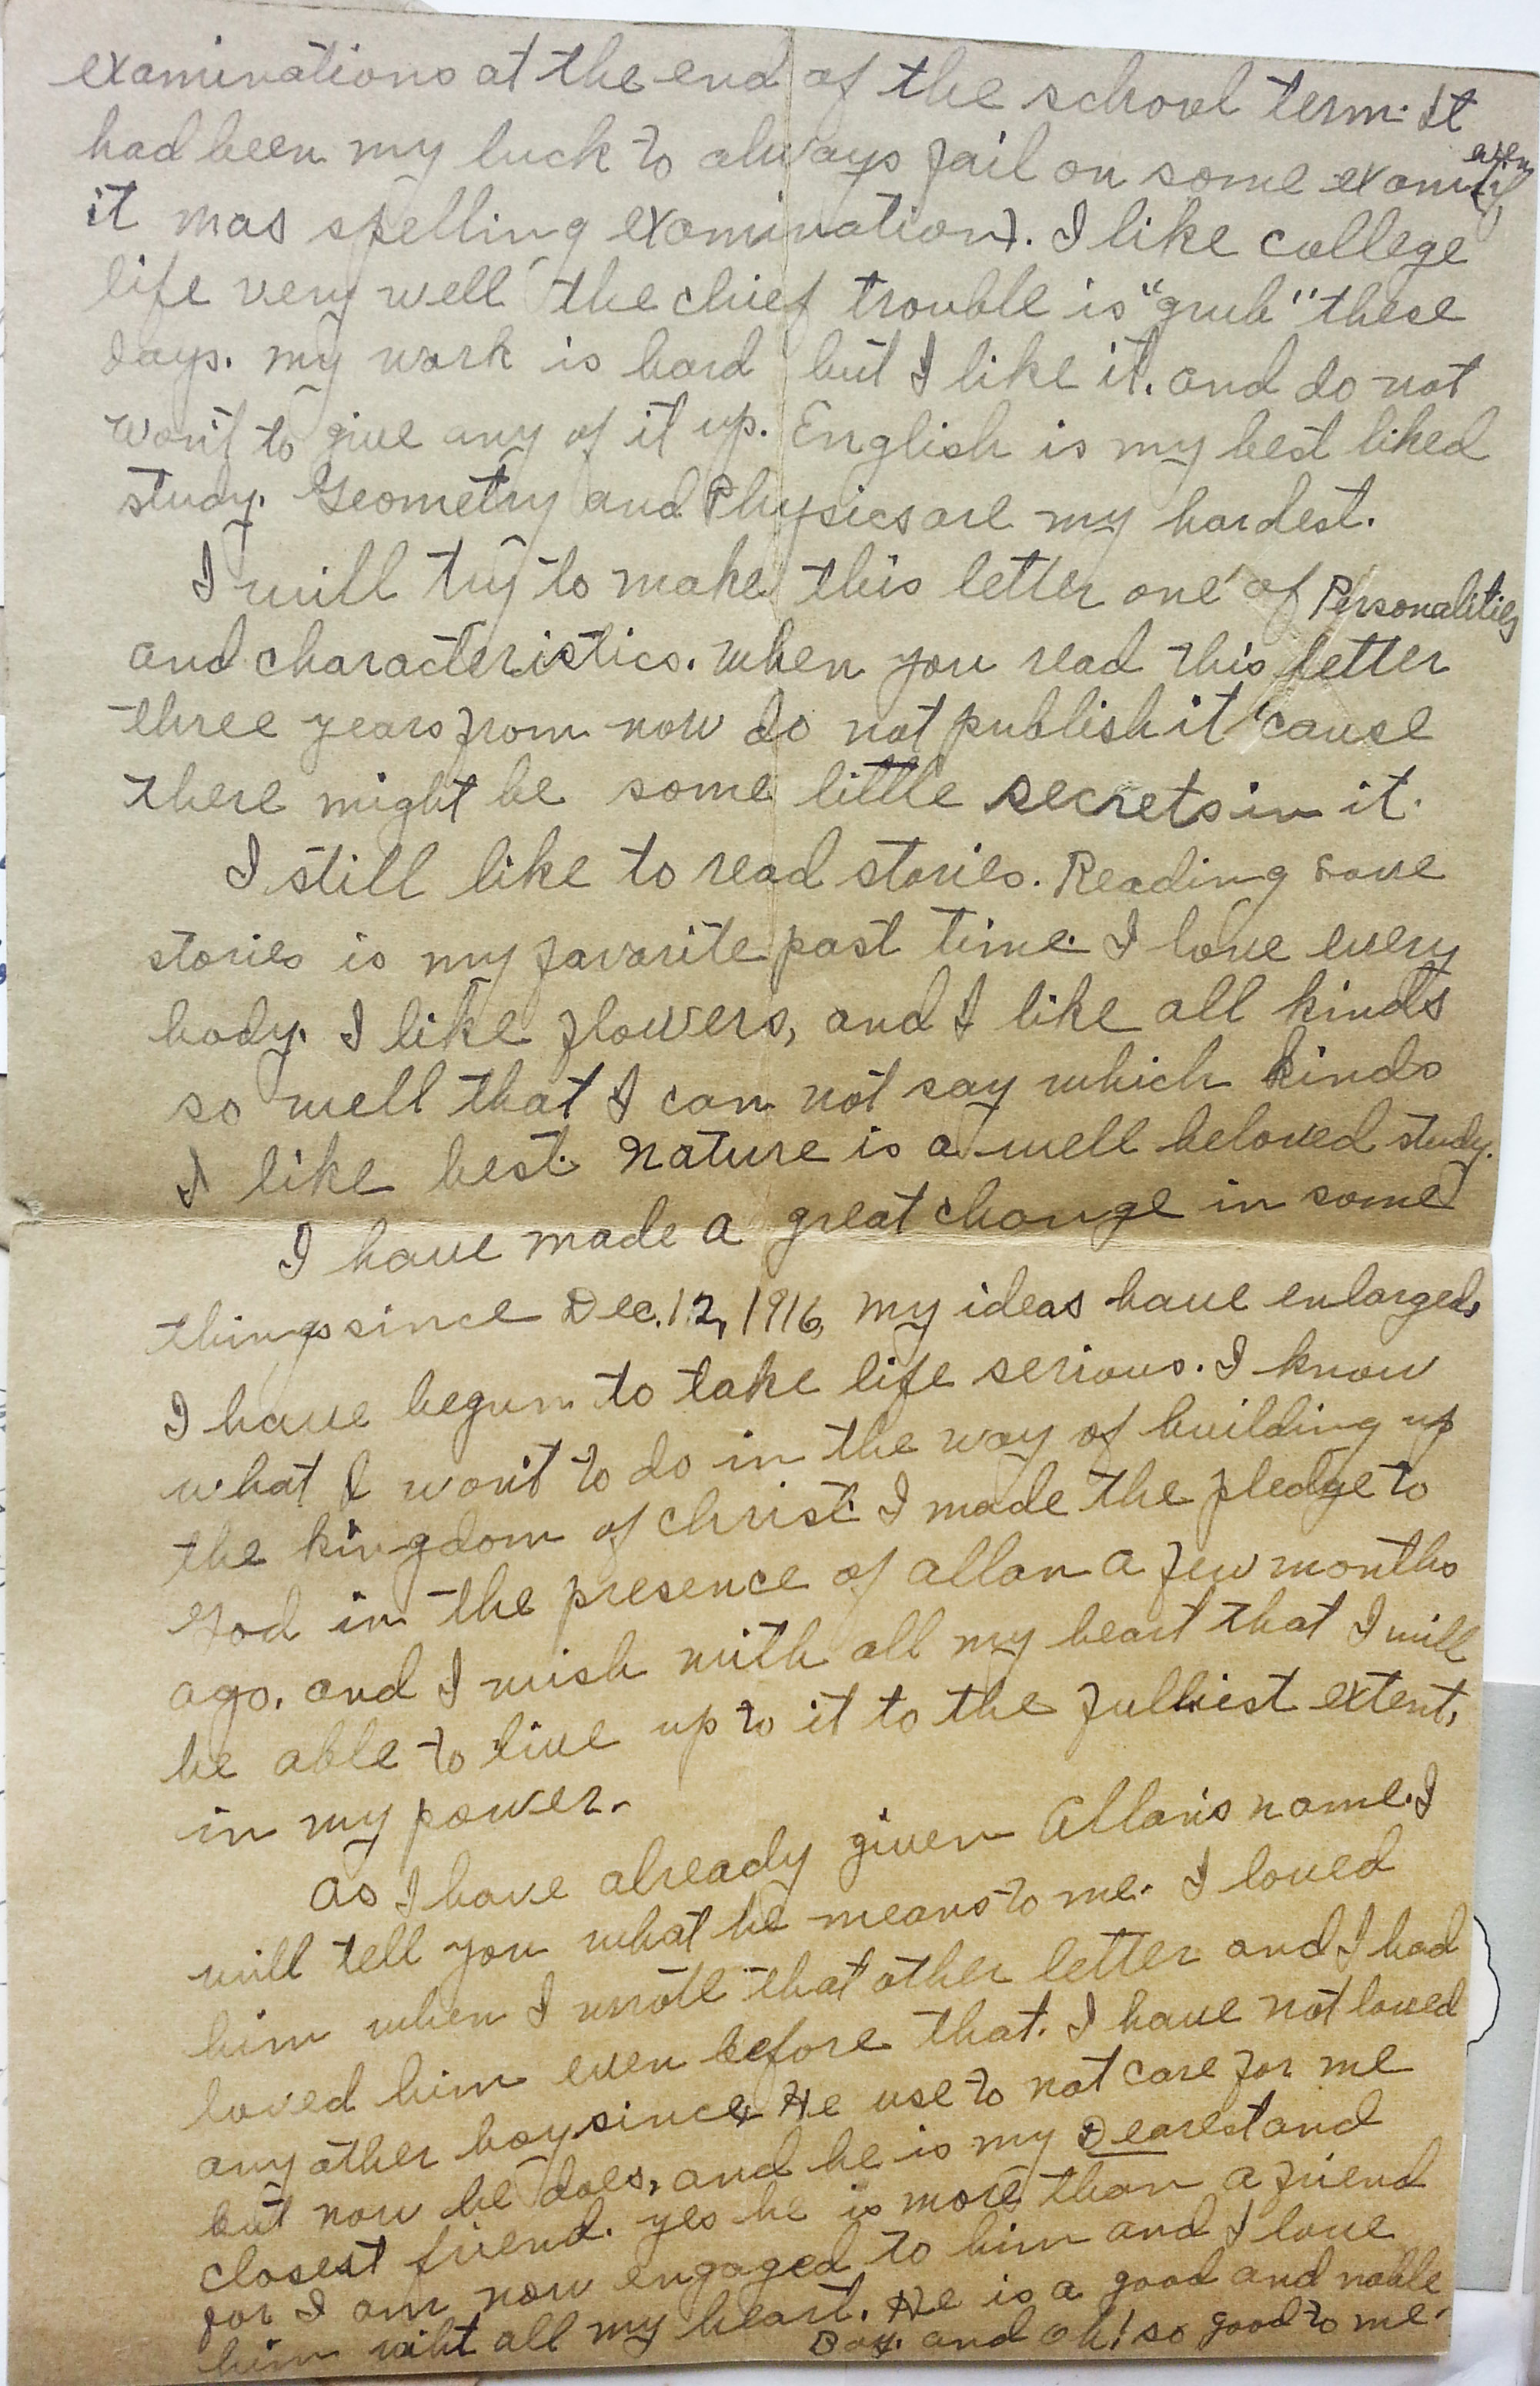 examinations at the end of the school term. It
had been my luck to always fail on some exam (even if
it was spelling examination). I like college
life very well the chief trouble is "grub" these
days. my work is hard but I like it. and do not
won't to give any of it up. English is my best liked
study. Geometry and Physics are my hardest.
I will try to make this letter one of Personalities
and characteristics. when you read this letter
three years from now do not publish it 'cause
there might be some little secrets in it.
I still like to read stories. Reading love
stories is my favorite past time. I love every
body. I like flowers, and I like all kinds
so well that I can not say which kinds
I like best. nature is a well beloved study.
I have made a great change in some
things since Dec. 12, 1916, my ideas have enlarged,
I have begun to take life serious. I know
what I won't to do in the way of building up
the kingdom of christ. I made the pledge to
God in the presence of allan a few months
ago. and I wish with all my heart that I will
be able to live up to it to the fulliest extent,
in my power.
as I have already given Allan's name. I
will tell you what he means to me. I loved
him when I wrote that other letter and I had
loved him even before that. I have not loved
any other boy since. He use to not care for me
but now he does, and he is my Dearest and
closest friend. yes he is more than a friend
for I am now engaged to him and I love
him wiht all my heart. He is a good and noble
Boy. and oh! so good to me.